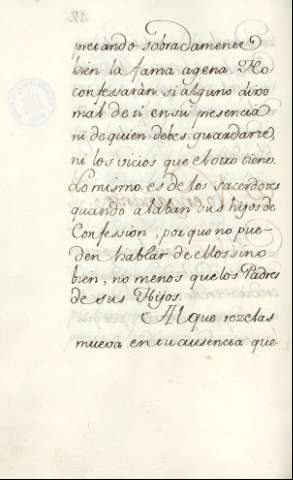 pretando sobradamente
bien la fama agena No
confessarán si alguno dixo
mal de ti en su presencia
ni de quien debes guardarte,
ni los vicios que el otro tiene.
Lo mismo es de los sacerdotes
quando alaban sus hijos de
Confession, porque no pue-
den hablar de ellos sino
bien, no menos que los Padres
de sus Hijos.
Al que rezelas
mueva en tu ausencia que